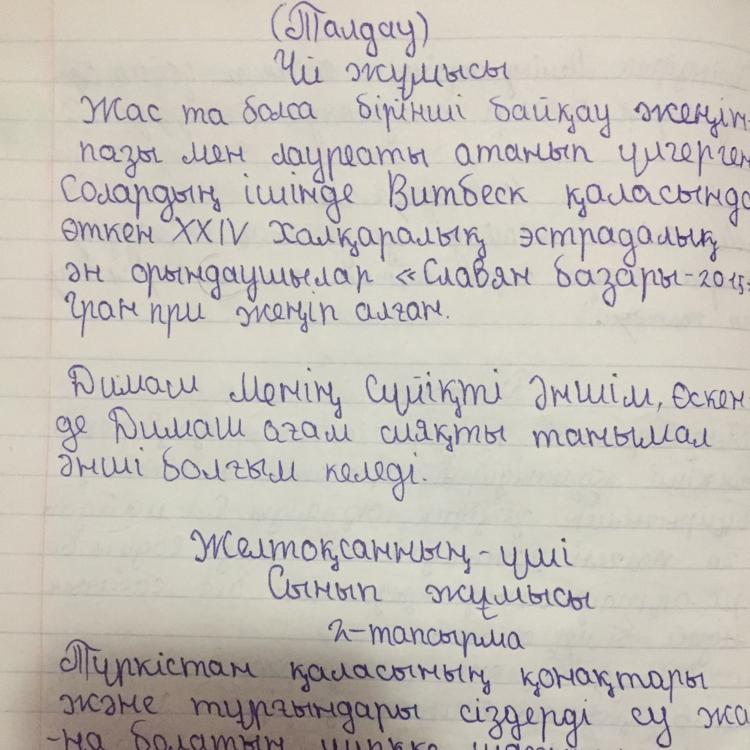 (Талдау)
Үй жұмысы
Жас та болса бірінші байқау жеңім-
пазы мен лауреаты атанып үлгерген
Солардың ішінде Витбеск қаласында
өткен XXIV Халқаралық эстрадалық
ән орындаушылар «Славян базары-2015»
Гран при жеңіп алған.
Димаш менің сүйікті әншім, Өскен-
де Димаш ағам сияқты танымал
әнші болғым келеді.
Желтоқсанның-үші
Сынып жұмысы
2-тапсырма
Түркістан қаласының қонақтары
және тұрғындары сіздерді су жа
-на болатын